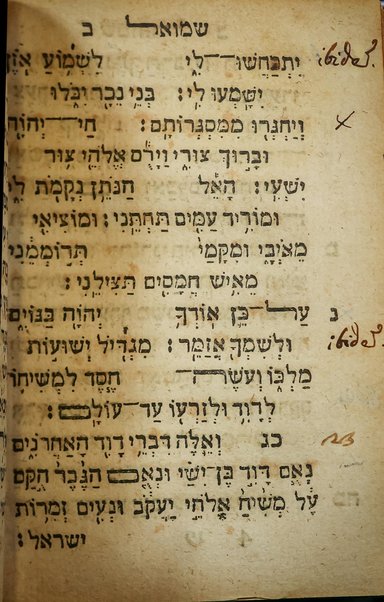 שמואל ב
יִתְכַּחֲשׁוּ־לִי לִשְׁמוֹעַ אֹזֶן ibidem.
יִשָּׁמְעוּ לִי׃ בְּנֵי נֵכָר יִבֹּלוּ
וְיַחְגְּרוּ מִמִּסְגְּרוֹתָם׃ חַי־יְהוָה x
וּבָרוּךְ צוּרִי וְיָרֻם אֱלֹהֵי צוּר
יִשְׁעִי׃ הָאֵל הַנֹּתֵן נְקָמֹת לִי
וּמוֹרִיד עַמִּים תַּחְתֵּנִי׃ וּמוֹצִיאִי
מֵאֹיְבָי וּמִקָּמַי תְּרוֹמְמֵנִי
מֵאִישׁ חֲמָסִים תַּצִּילֵנִי׃
נ עַל־כֵּן אוֹדְךָ יְהוָה בַּגּוֹיִם
וּלְשִׁמְךָ אֲזַמֵּר׃ מִגְדִּיל יְשׁוּעוֹת ibidem.
מַלְכּוֹ וְעֹשֶׂה־חֶסֶד לִמְשִׁיחוֹ
לְדָוִד וּלְזַרְעוֹ עַד־עוֹלָם׃
כג וְאֵלֶּה דִּבְרֵי דָוִד הָאַחֲרֹנִים 23
נְאֻם דָּוִד בֶּן־יִשַׁי וּנְאֻם הַגֶּבֶר הֻקַם
עָל מְשִׁיחַ אֱלֹהֵי יַעֲקֹב וּנְעִים זְמִרוֹת
ישראל׃